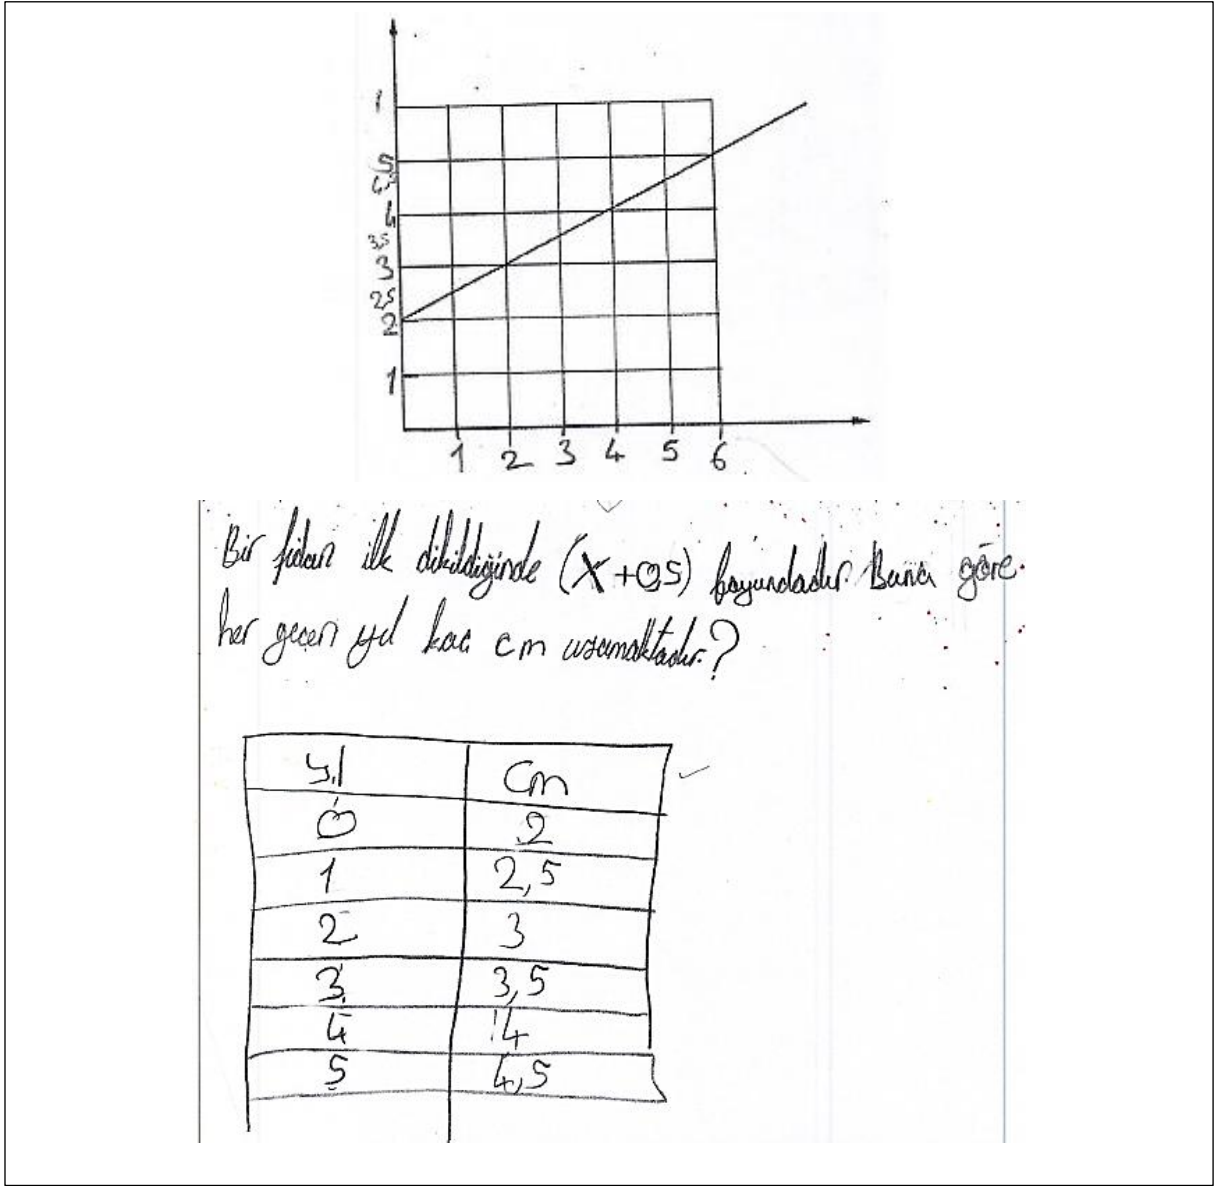 1
5
4,5
4
3,5
3
2,5
2
1
1 2 3 4 5 6
Bir fidan ilk dikildiğinde (X+0,5) boyundadır. Buna göre
her geçen yıl kaç cm uzamaktadır?
yıl cm
0 2
1 2,5
2 3
3 3,5
4 4
5 4,5